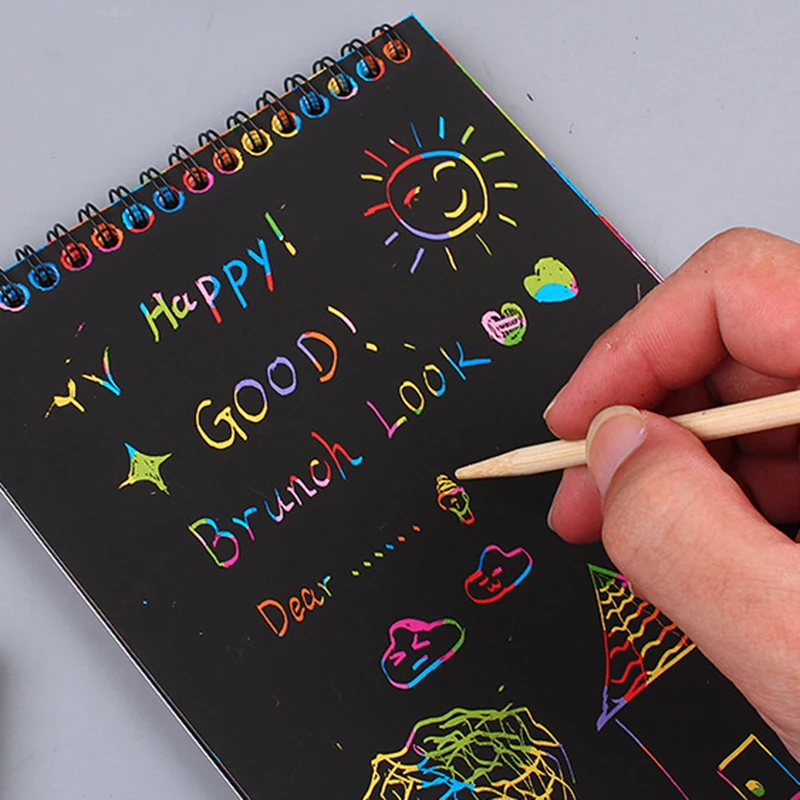 Happy!
YV
GOOD!
Brunch Look
Dear ........